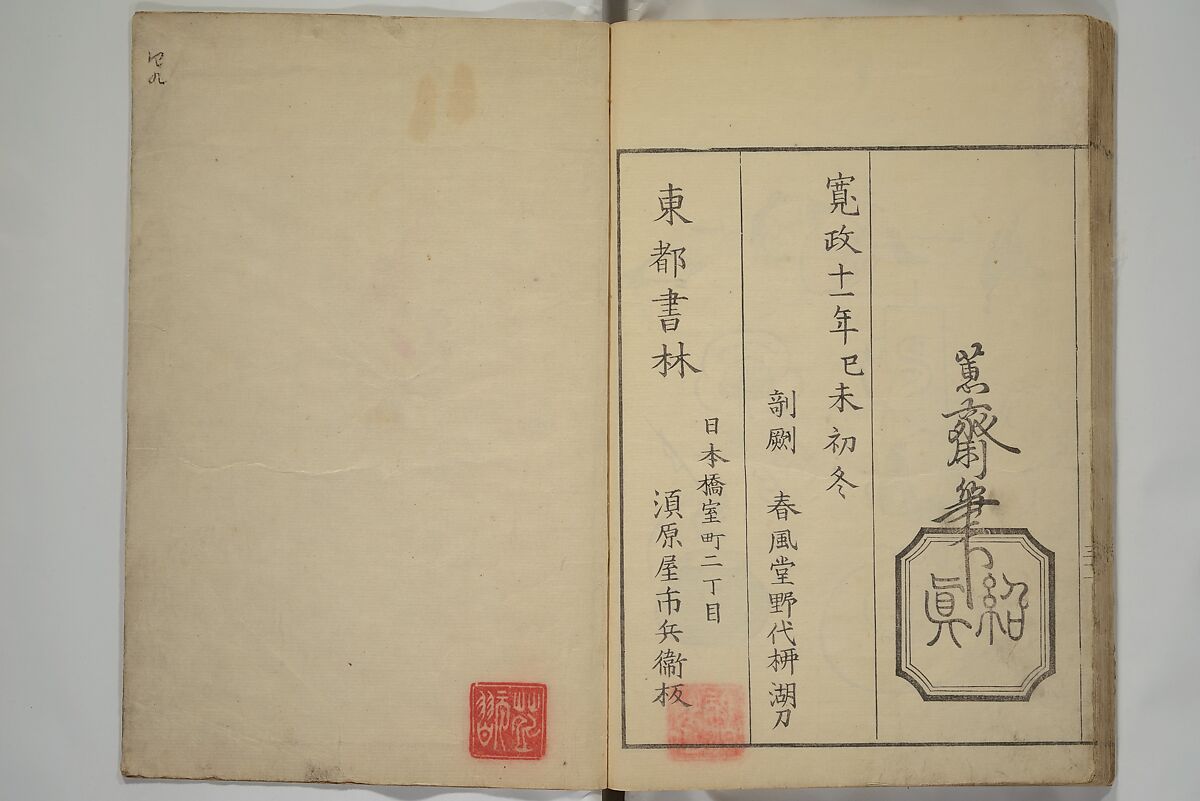 蕙齋筆
紹真
寛政十一年己未初冬
剞劂 春風堂野代柳湖刀
東都書林
日本橋室町二丁目
須原屋市兵衞板